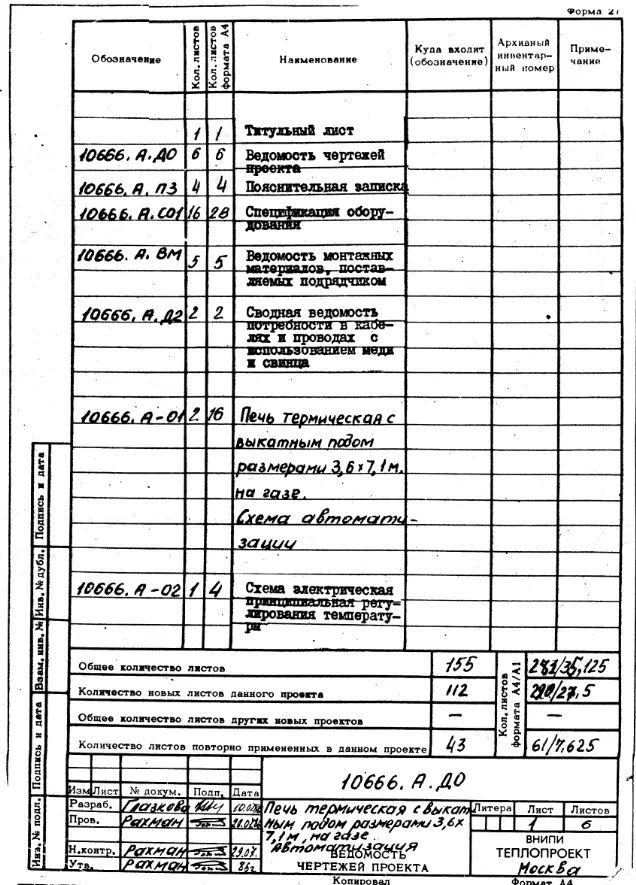 Форма 27
Обозначение
Кол. листов
Кол. листов формата А4
Наименование
Куда входит (обозначение)
Архивный инвентар-ный номер
Приме-чание
1 1 Титульный лист
10666. А.ДО 6 6 Ведомость чертежей
проекта
10666. А. ПЗ 4 4 Пояснительная записка
10666. А. СО1 16 28 Спецификация обору-
дования
10666. А. ВМ 5 5 Ведомость монтажных
материалов, постав-
ляемых подрядчиком
10666. А. Д2 2 2 Сводная ведомость
потребности в кабе-
лях и проводах с
использованием меди
и свинца
10666. А-01 2 16 Печь термическая с
выкатным подом
размерами 3,6х7,1м.
на газе.
Схема автомати-
зации
10666. А-02 1 4 Схема электрическая
принципиальная регу-
лирования температу-
ры
Общее количество листов 155
Количество новых листов данного проекта 112
Общее количество листов других новых проектов —
Количество листов повторно примененных в данном проекте 43
Кол. листов формата А4/А1
,125
,5
—
61/7,625
Подпись и дата
Инв. № дубл.
Взам. инв. №
Подпись и дата
Инв. № подл.
10666. А.ДО
Изм Лист № докум. Подп. Дата
Разраб. Глазкова
Пров. Рахман
Н.контр. Рахман
Утв. Рахман 86г.
Печь термическая с выкат
ным подом размерами 3,6х
7,1м, на газе.
Автоматизация
ВЕДОМОСТЬ
ЧЕРТЕЖЕЙ ПРОЕКТА
Литера Лист Листов
1 6
ВНИПИ
ТЕПЛОПРОЕКТ
Москва
Копировал
Формат А4